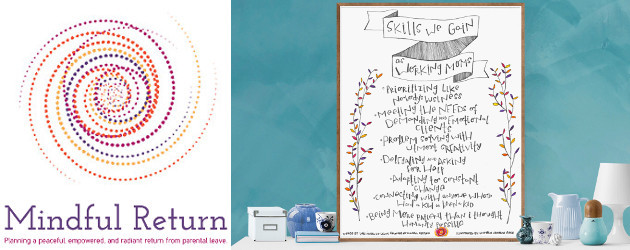 Mindful Return
Planning a peaceful, empowered, and radiant return from parental leave.
Skills we Gain
as Working Moms
• Prioritizing Like
Nobody's Business
• Meeting the Needs of
Demanding and Emotional
Clients
• Problem Solving with
utmost Creativity
• Delegating and Asking
for Help
• Adapting to Constant
Change
• Connecting with anyone who's
had a kid or been a kid
• Being more patient than I thought
humanly possible